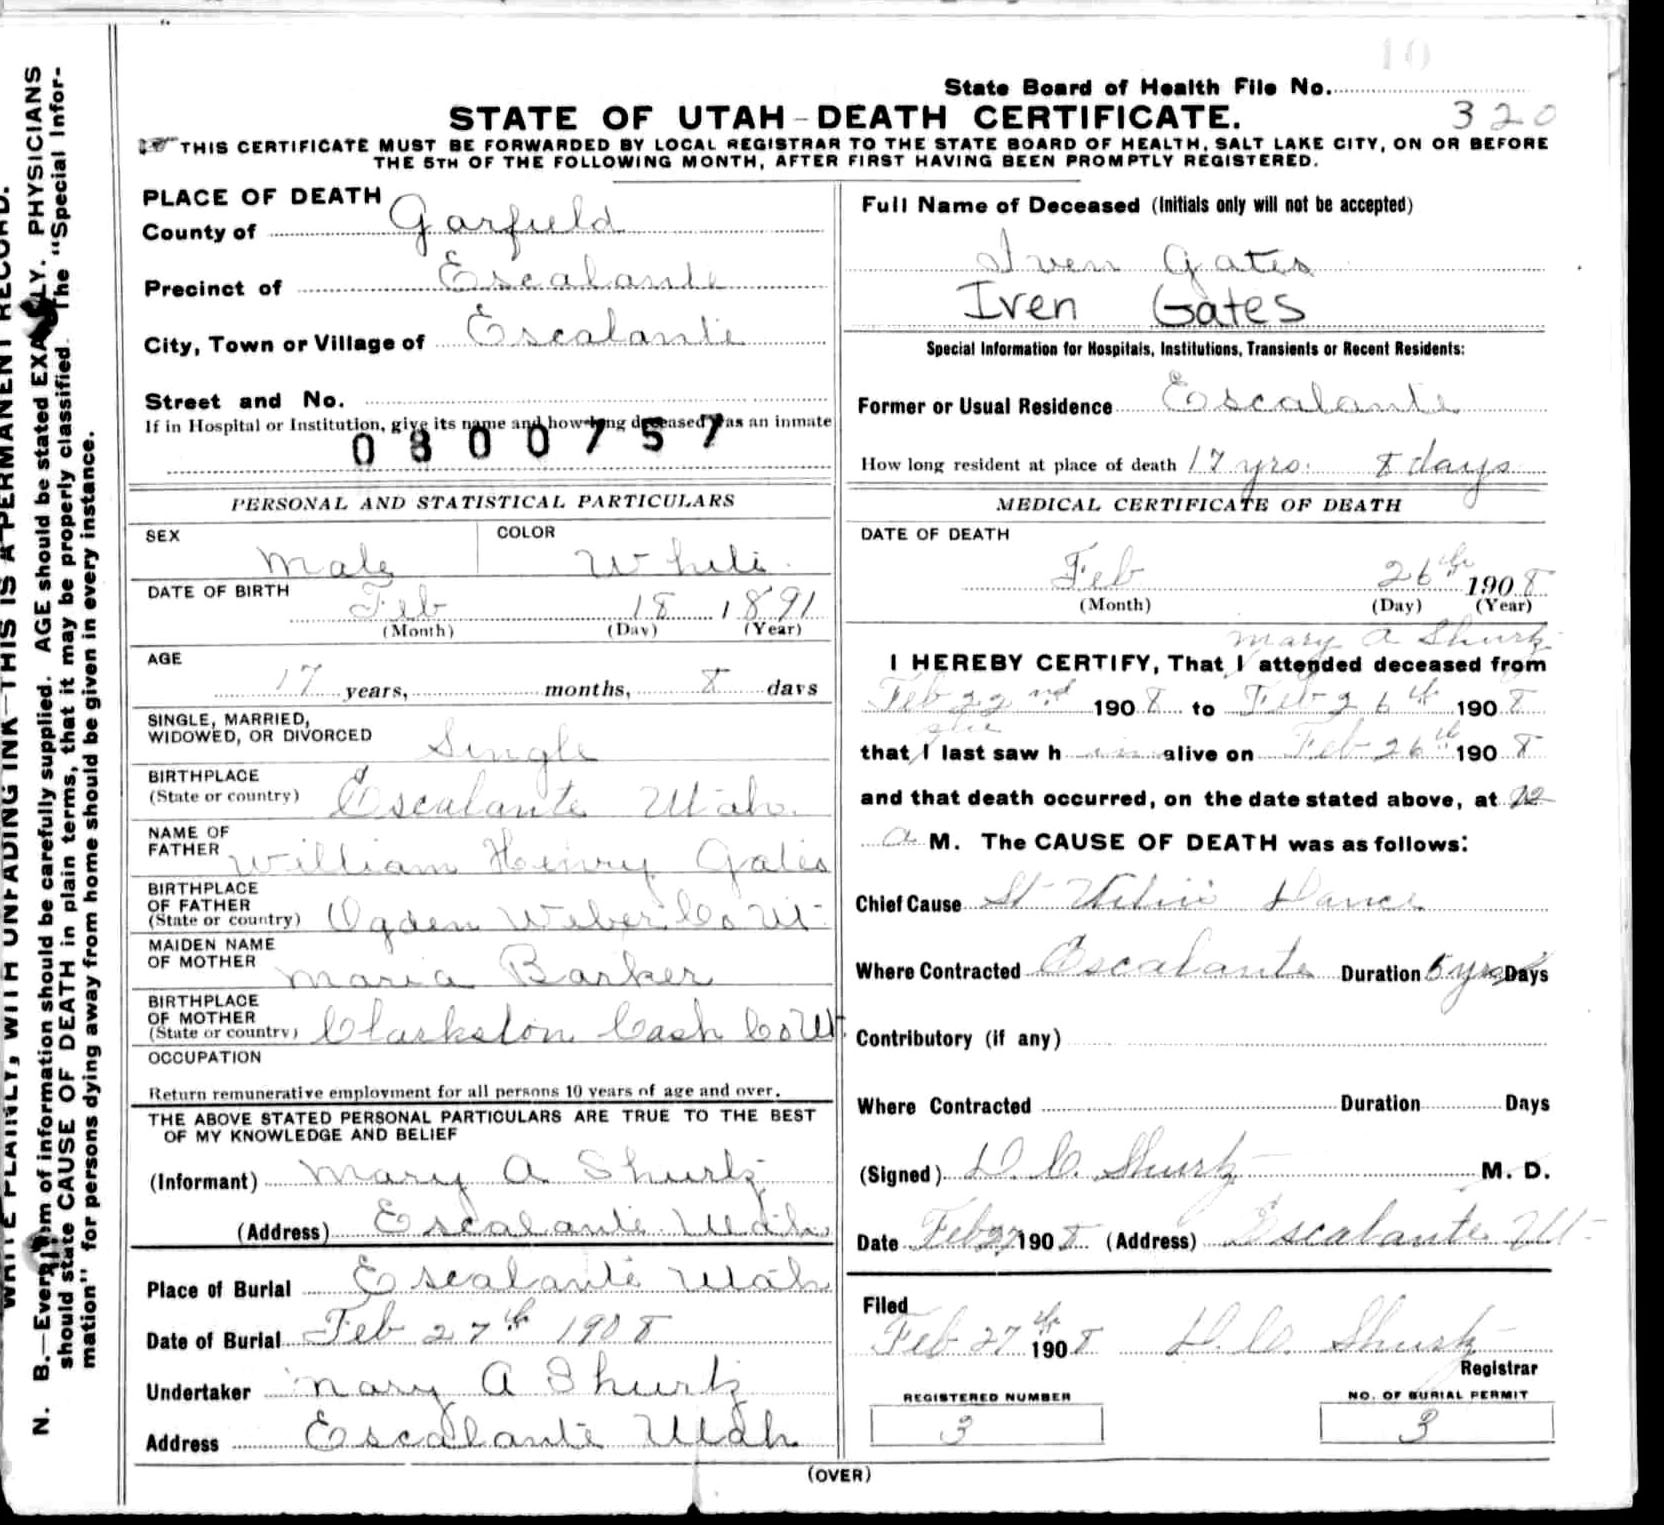 State Board of Health File No.
10
320
STATE OF UTAH - DEATH CERTIFICATE.
THIS CERTIFICATE MUST BE FORWARDED BY LOCAL REGISTRAR TO THE STATE BOARD OF HEALTH, SALT LAKE CITY, ON OR BEFORE
THE 5TH OF THE FOLLOWING MONTH, AFTER FIRST HAVING BEEN PROMPTLY REGISTERED.
PLACE OF DEATH
County of Garfield
Precinct of Escalante
City, Town or Village of Escalante
Street and No.
If in Hospital or Institution, give its name and how long deceased was an inmate
0300757
PERSONAL AND STATISTICAL PARTICULARS
SEX Male COLOR White
DATE OF BIRTH Feb 18 1891
(Month) (Day) (Year)
AGE
17 years, months, 8 days
SINGLE, MARRIED,
WIDOWED, OR DIVORCED Single
BIRTHPLACE
(State or country) Escalante Utah.
NAME OF
FATHER William Henry Gates
BIRTHPLACE
OF FATHER
(State or country) Ogden Weber Co Ut.
MAIDEN NAME
OF MOTHER Maria Barker
BIRTHPLACE
OF MOTHER
(State or country) Clarkston Cash Co Ut.
OCCUPATION
Return remunerative employment for all persons 10 years of age and over.
THE ABOVE STATED PERSONAL PARTICULARS ARE TRUE TO THE BEST
OF MY KNOWLEDGE AND BELIEF
(Informant) Mary A Shurtz
(Address) Escalante Utah
Place of Burial Escalante Utah
Date of Burial Feb 27th 1908
Undertaker Mary A Shurtz
Address Escalante Utah
Full Name of Deceased (Initials only will not be accepted)
Iven Gates
Iven Gates
Special Information for Hospitals, Institutions, Transients or Recent Residents:
Former or Usual Residence Escalante
How long resident at place of death 17 yrs. 8 days
MEDICAL CERTIFICATE OF DEATH
DATE OF DEATH
Feb 26th 1908
(Month) (Day) (Year)
Mary A Shurtz
I HEREBY CERTIFY, That I attended deceased from
Feb 22nd 1908 to Feb 26th 1908
she
that I last saw h im alive on Feb 26th 1908
and that death occurred, on the date stated above, at 12
a M. The CAUSE OF DEATH was as follows:
Chief Cause St Dance
Where Contracted Escalante Duration 5 yrs Days
Contributory (if any)
Where Contracted Duration Days
(Signed) D. C. Shurtz M. D.
Date Feb 27 1908 (Address) Escalante Ut-
Filed
Feb 27th 1908 D. C. Shurtz
Registrar
REGISTERED NUMBER
3
NO. OF BURIAL PERMIT
3
(OVER)
WRITE PLAINLY, WITH UNFADING INK—THIS IS A PERMANENT RECORD.
N. B.—Every item of information should be carefully supplied. AGE should be stated EXACTLY. PHYSICIANS
should state CAUSE OF DEATH in plain terms, that it may be properly classified. The "Special Infor-
mation" for persons dying away from home should be given in every instance.